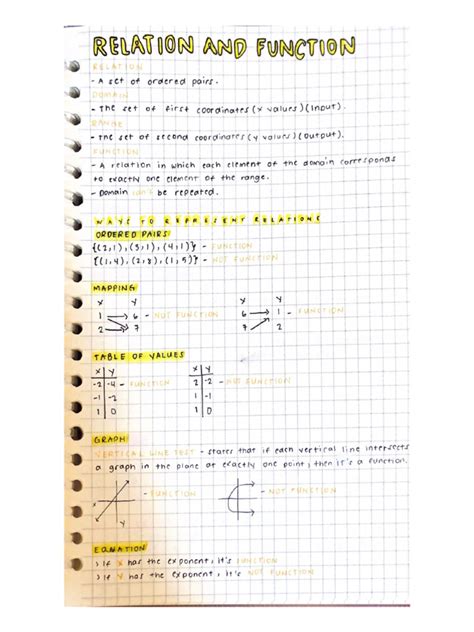 RELATION AND FUNCTION
RELATION
- A set of ordered pairs.
DOMAIN
- The set of first coordinates (x values) (Input).
RANGE
- The set of second coordinates (y values) (Output).
FUNCTION
- A relation in which each element of the domain corresponds
to exactly one element of the range.
- Domain can't be repeated.
WAYS TO REPRESENT RELATIONS
ORDERED PAIRS
{(2,1), (3,1), (4,1)} - FUNCTION
{(1,4), (2,8), (1,5)} - NOT FUNCTION
MAPPING
X Y X Y
1 6 - NOT FUNCTION 6 1 - FUNCTION
2 7 7 2
TABLE OF VALUES
X Y X Y
-2 -4 - FUNCTION 2 -2 - NOT FUNCTION
-1 -2 1 -1
1 0 1 0
GRAPH
VERTICAL LINE TEST - states that if each vertical line intersects
a graph in the plane at exactly one point, then it's a function.
- FUNCTION - NOT FUNCTION
X
Y
EQUATION
> If X has the exponent, it's FUNCTION
> If Y has the exponent, it's NOT FUNCTION